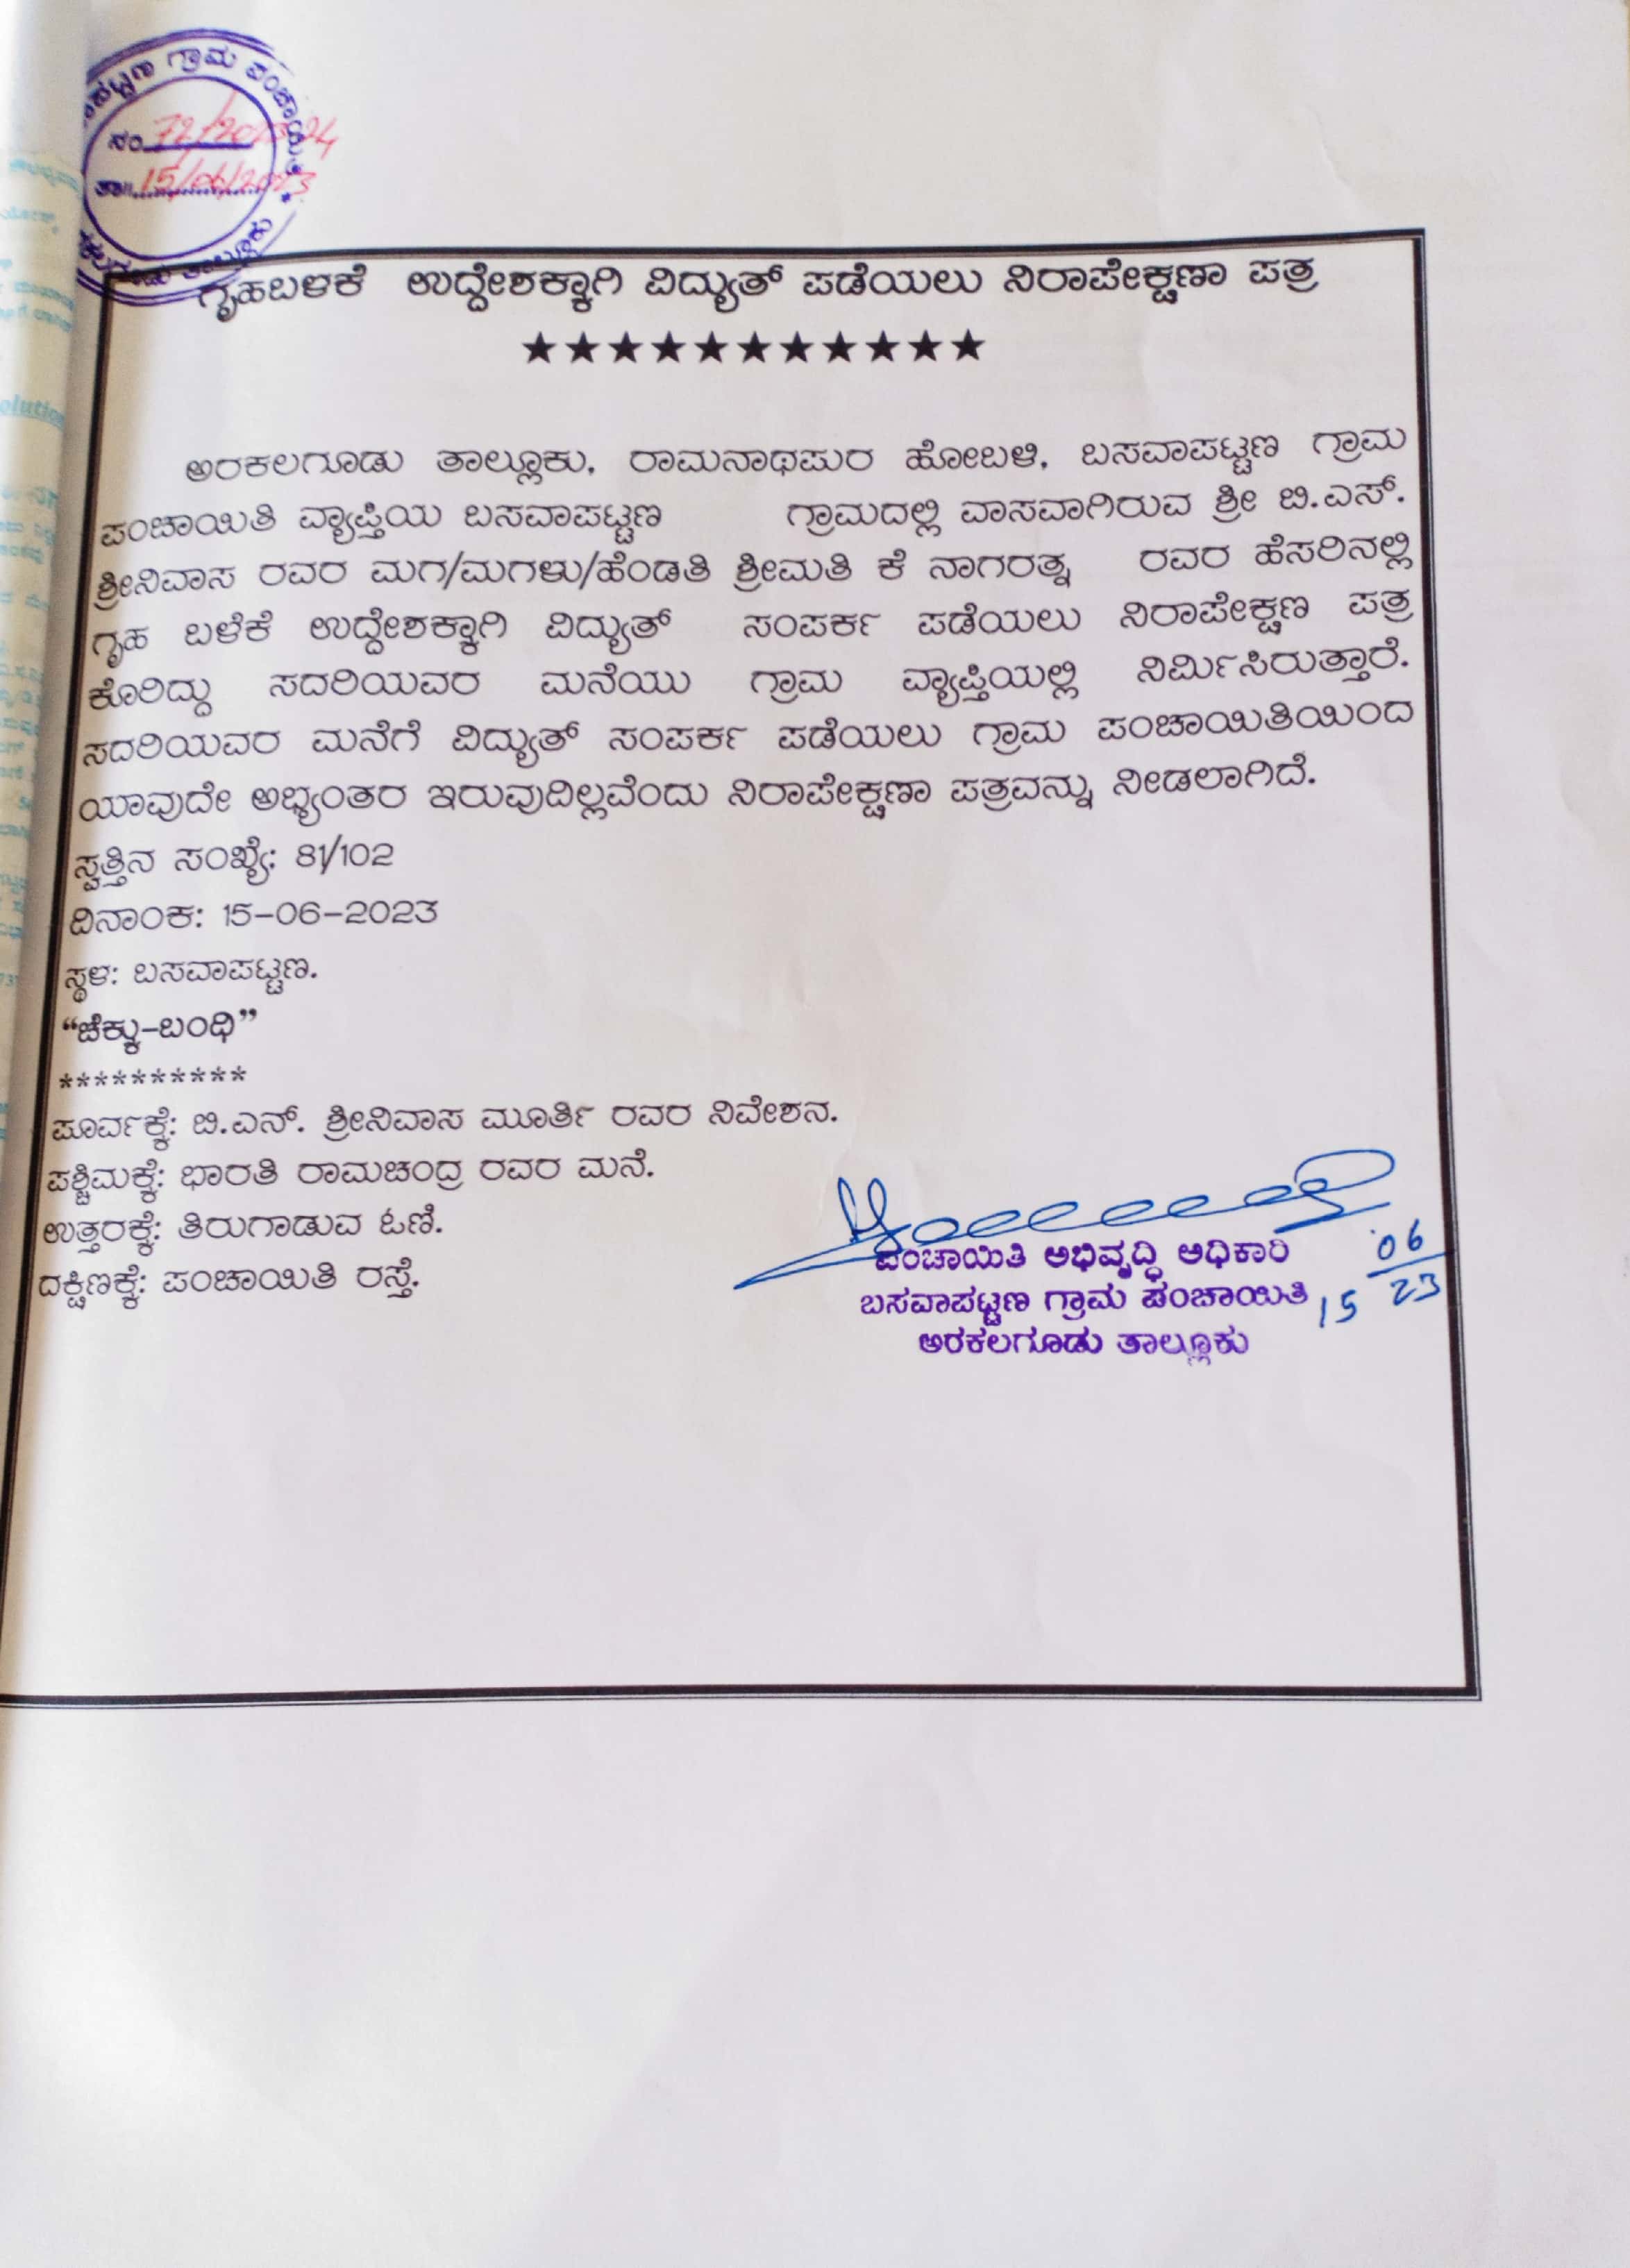 ಗ್ರಾಮ ಪಂಚಾಯಿತಿ
ನಂ. 72/2023-24
ತಾ॥ 15/06/2023
ತಾಲ್ಲೂಕು
ಗೃಹಬಳಕೆ ಉದ್ದೇಶಕ್ಕಾಗಿ ವಿದ್ಯುತ್ ಪಡೆಯಲು ನಿರಾಪೇಕ್ಷಣಾ ಪತ್ರ
★★★★★★★★★★★
ಅರಕಲಗೂಡು ತಾಲ್ಲೂಕು, ರಾಮನಾಥಪುರ ಹೋಬಳಿ, ಬಸವಾಪಟ್ಟಣ ಗ್ರಾಮ
ಪಂಚಾಯಿತಿ ವ್ಯಾಪ್ತಿಯ ಬಸವಾಪಟ್ಟಣ ಗ್ರಾಮದಲ್ಲಿ ವಾಸವಾಗಿರುವ ಶ್ರೀ ಬಿ.ಎಸ್.
ಶ್ರೀನಿವಾಸ ರವರ ಮಗ/ಮಗಳು/ಹೆಂಡತಿ ಶ್ರೀಮತಿ ಕೆ ನಾಗರತ್ನ ರವರ ಹೆಸರಿನಲ್ಲಿ
ಗೃಹ ಬಳೆಕೆ ಉದ್ದೇಶಕ್ಕಾಗಿ ವಿದ್ಯುತ್ ಸಂಪರ್ಕ ಪಡೆಯಲು ನಿರಾಪೇಕ್ಷಣ ಪತ್ರ
ಕೊರಿದ್ದು ಸದರಿಯವರ ಮನೆಯು ಗ್ರಾಮ ವ್ಯಾಪ್ತಿಯಲ್ಲಿ ನಿರ್ಮಿಸಿರುತ್ತಾರೆ.
ಸದರಿಯವರ ಮನೆಗೆ ವಿದ್ಯುತ್ ಸಂಪರ್ಕ ಪಡೆಯಲು ಗ್ರಾಮ ಪಂಚಾಯಿತಿಯಿಂದ
ಯಾವುದೇ ಅಭ್ಯಂತರ ಇರುವುದಿಲ್ಲವೆಂದು ನಿರಾಪೇಕ್ಷಣಾ ಪತ್ರವನ್ನು ನೀಡಲಾಗಿದೆ.
ಸ್ವತ್ತಿನ ಸಂಖ್ಯೆ: 81/102
ದಿನಾಂಕ: 15-06-2023
ಸ್ಥಳ: ಬಸವಾಪಟ್ಟಣ.
“ಚೆಕ್ಕು-ಬಂಧಿ”
**********
ಪೂರ್ವಕ್ಕೆ: ಬಿ.ಎನ್. ಶ್ರೀನಿವಾಸ ಮೂರ್ತಿ ರವರ ನಿವೇಶನ.
ಪಶ್ಚಿಮಕ್ಕೆ: ಭಾರತಿ ರಾಮಚಂದ್ರ ರವರ ಮನೆ.
ಉತ್ತರಕ್ಕೆ: ತಿರುಗಾಡುವ ಓಣಿ.
ದಕ್ಷಿಣಕ್ಕೆ: ಪಂಚಾಯಿತಿ ರಸ್ತೆ.
ಪಂಚಾಯಿತಿ ಅಭಿವೃದ್ಧಿ ಅಧಿಕಾರಿ
ಬಸವಾಪಟ್ಟಣ ಗ್ರಾಮ ಪಂಚಾಯಿತಿ
ಅರಕಲಗೂಡು ತಾಲ್ಲೂಕು
15 06 23